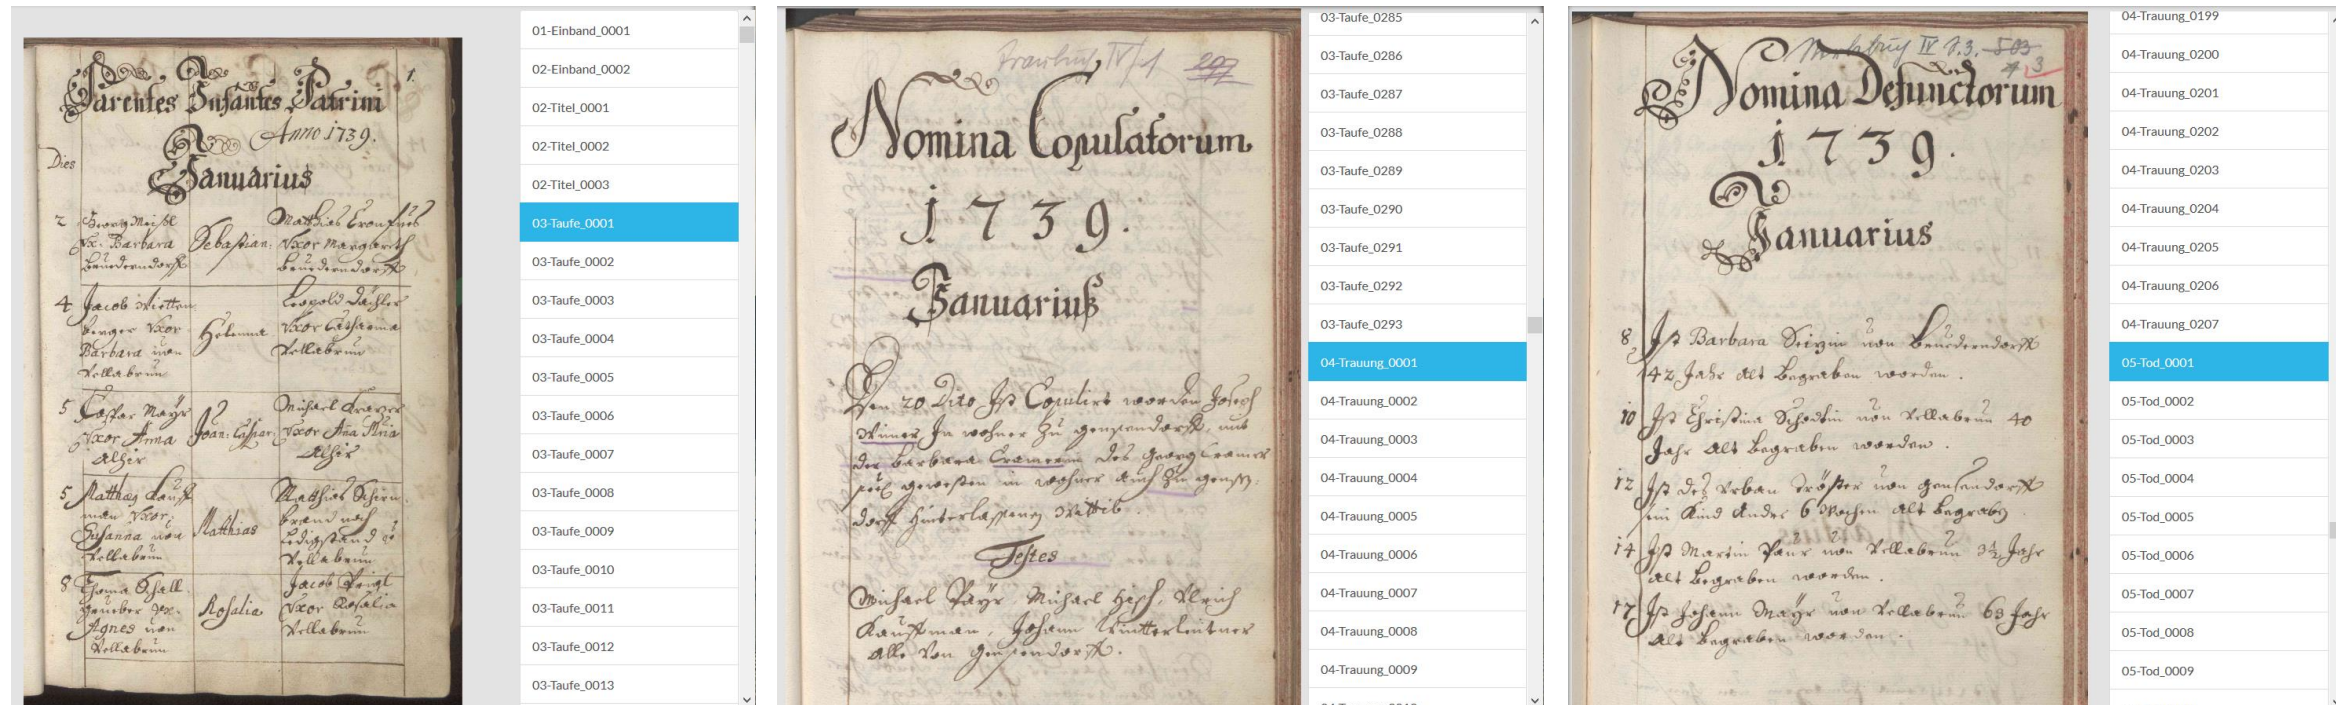 Parentes Infantes Patrini
1.
Anno 1739.
Dies
Januarius
2 Georg Meißl
Ux. Barbara
Sebastian:
Matthias
Uxor Margareth
4 Jacob
Uxor
Barbara von
Vellabrun
Helenna
Leopold Dächler
Uxor Catharina
Vellabrun
5 Caspar Mayr
Uxor Anna
Alhir
Joan: Caspar:
Michael Kramer
Uxor Ana Maria
Alhir
5 Matthias Kauff
man Uxor
Susanna von
Vellabrun
Matthias
Matthias Schirm
brand noch
Ledigstand
Vellabrun
8 Thoma Schall
grueber Ux.
Agnes von
Vellabrun
Rosalia
Jacob
Uxor Rosalia
Vellabrun
01-Einband_0001
01-Einband_0002
02-Titel_0001
02-Titel_0002
02-Titel_0003
03-Taufe_0001
03-Taufe_0002
03-Taufe_0003
03-Taufe_0004
03-Taufe_0005
03-Taufe_0006
03-Taufe_0007
03-Taufe_0008
03-Taufe_0009
03-Taufe_0010
03-Taufe_0011
03-Taufe_0012
03-Taufe_0013
Nomina Copulatorum
1739.
Januariuß
Den 20 Dito Ist Copulirt worden Joseph
Wimer In wohner zu gensendorff, mit
der Barbara Cramerin des Georg Cramer
seel gewesten in wohner auch zu gensen-
dorff hinterlassene Wittib.
Testes
Michael Payr, Michael Hash, Ulrich
Kauffman, Johann
Alle von Gensendorff.
03-Taufe_0285
03-Taufe_0286
03-Taufe_0287
03-Taufe_0288
03-Taufe_0289
03-Taufe_0290
03-Taufe_0291
03-Taufe_0292
03-Taufe_0293
04-Trauung_0001
04-Trauung_0002
04-Trauung_0003
04-Trauung_0004
04-Trauung_0005
04-Trauung_0006
04-Trauung_0007
04-Trauung_0008
04-Trauung_0009
Nomina Defunctorum
1739.
Januarius
8 Ist Barbara von
42 Jahr alt Begraben worden.
10 Ist Christina von Vellabrun 40
Jahr alt Begraben worden.
12 Ist des Urban Tröster von gensendorff
sein Kind Andre 6 Wochen alt Begraben
14 Ist Martin Paur von Vellabrun 3½ Jahr
alt Begraben worden.
17 Ist Johann Mayr von Vellabrun 63 Jahr
Alt Begraben worden.
04-Trauung_0199
04-Trauung_0200
04-Trauung_0201
04-Trauung_0202
04-Trauung_0203
04-Trauung_0204
04-Trauung_0205
04-Trauung_0206
04-Trauung_0207
05-Tod_0001
05-Tod_0002
05-Tod_0003
05-Tod_0004
05-Tod_0005
05-Tod_0006
05-Tod_0007
05-Tod_0008
05-Tod_0009